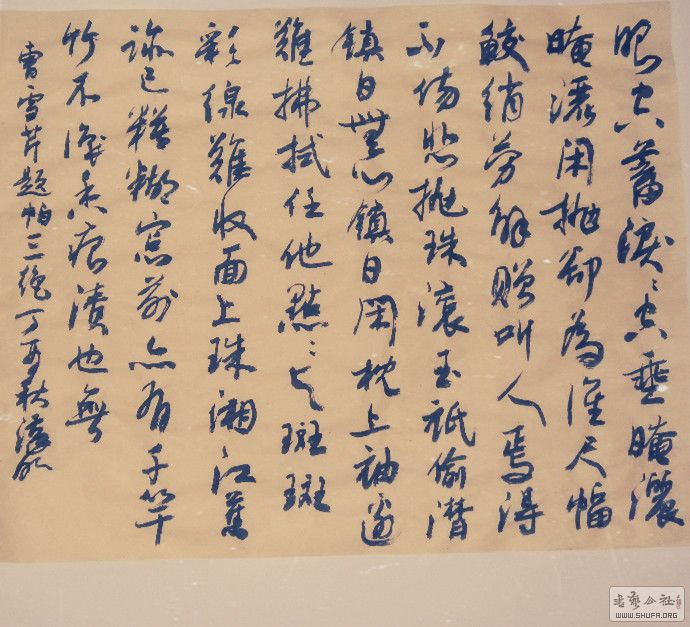 眼空蓄淚〻空垂晻灑
晻灑閑抛卻為誰尺幅
鮫綃勞解贈叫人焉得
不傷悲抛珠滾玉祇偷潛
鎮日無心鎮日閑枕上袖邊
難拂拭任他點〻与斑斑
彩線難收面上珠湘江舊
跡已糢糊窓前亦有千竿
竹不識香痕漬也無
曹雪芹題帕三絕丁酉秋
書藝公社
WWW.SHUFA.ORG